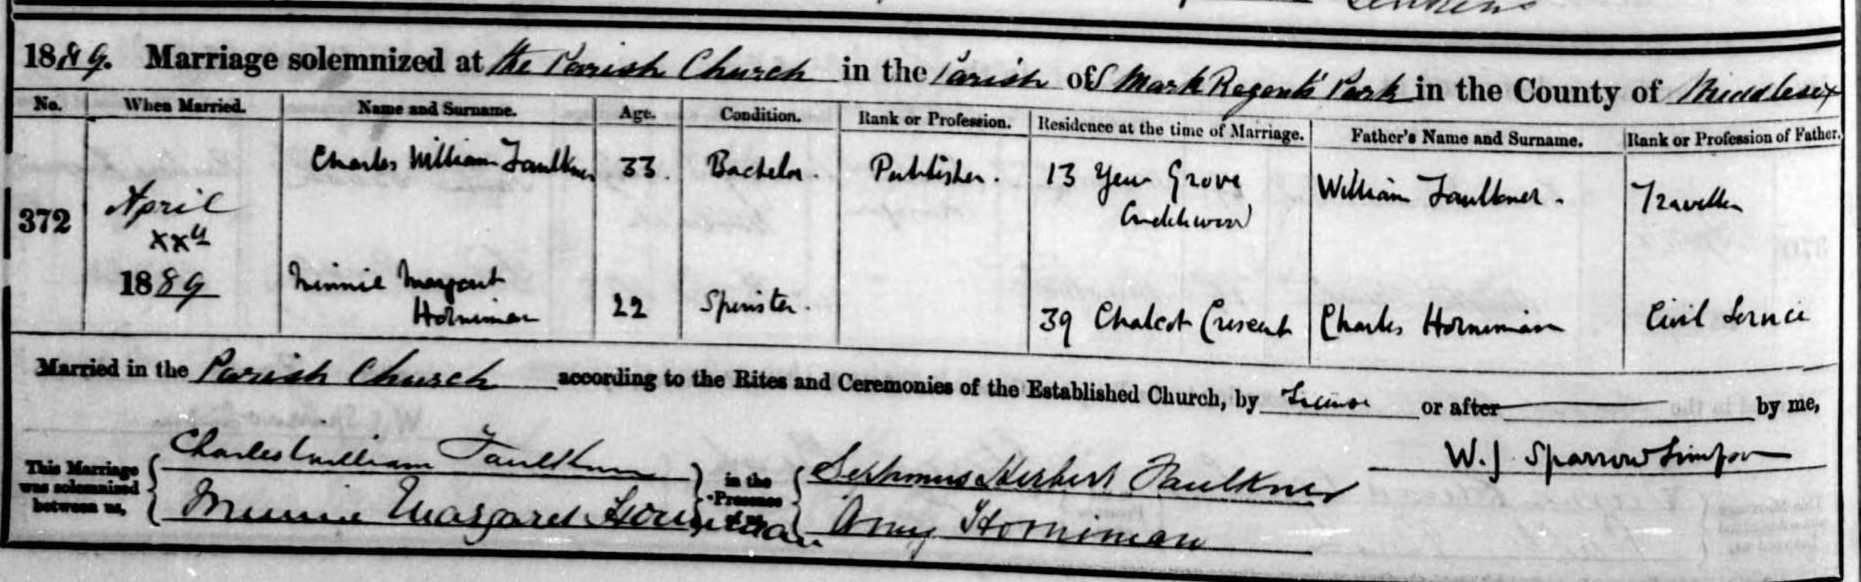 1889. Marriage solemnized at the Parish Church in the Parish of S Mark Regents Park in the County of Middlesex
No. When Married. Name and Surname. Age. Condition. Rank or Profession. Residence at the time of Marriage. Father's Name and Surname. Rank or Profession of Father.
372
April
xx
1889
Charles William Faulkner 33. Bachelor. Publisher. 13 Yew Grove William Faulkner. Traveller
Minnie Margaret
Horniman 22 Spinster. 39 Chalcot Crescent Charles Horniman Civil Service
Married in the Parish Church according to the Rites and Ceremonies of the Established Church, by License or after by me,
This Marriage was solemnized between us, Charles William Faulkner in the Presence of us, Septimus Herbert Faulkner W. J. Sparrow Simpson
Minnie Margaret Horniman Amy Horniman